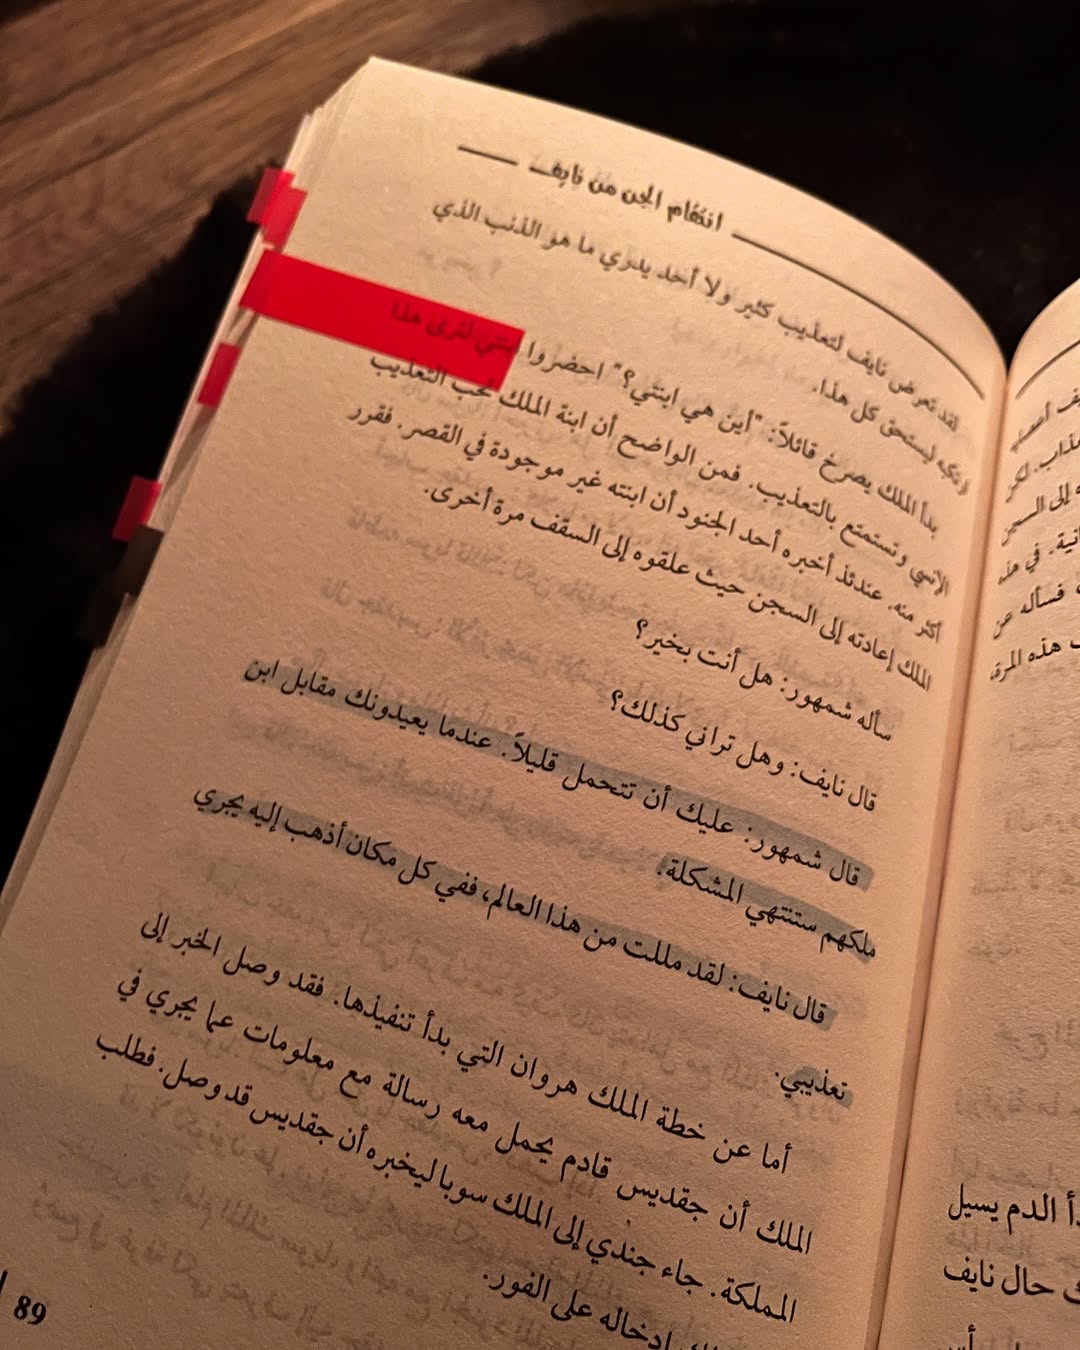 انتقام الجن من نايف
لقد تعرض نايف لتعذيب كثير ولا أحد يدري ما هو الذنب الذي
ارتكبه ليستحق كل هذا.
بدأ الملك يصرخ قائلاً: "أين هي ابنتي؟" احضروا ابنتي لترى هذا
الآنسي وتستمتع بالتعذيب. فمن الواضح أن ابنة الملك تحب التعذيب
أكثر منه. عندئذ أخبره أحد الجنود أن ابنته غير موجودة في القصر. فقرر
الملك إعادته إلى السجن حيث علقوه إلى السقف مرة أخرى.
سأله شمهور: هل أنت بخير؟
قال نايف: وهل تراني كذلك؟
قال شمهور: عليك أن تتحمل قليلاً. عندما يعيدونك مقابل ابن
ملكهم ستنتهي المشكلة.
قال نايف: لقد مللت من هذا العالم، ففي كل مكان أذهب إليه يجري
تعذيبي.
أما عن خطة الملك هروان التي بدأ تنفيذها. فقد وصل الخبر إلى
الملك أن جقديس قادم يحمل معه رسالة مع معلومات عما يجري في
المملكة. جاء جندي إلى الملك سوبا ليخبره أن جقديس قد وصل. فطلب
إدخاله على الفور.
89
إلى السجن
في هذه
فسأله عن
هذه المرة،
الدم يسيل
حال نايف